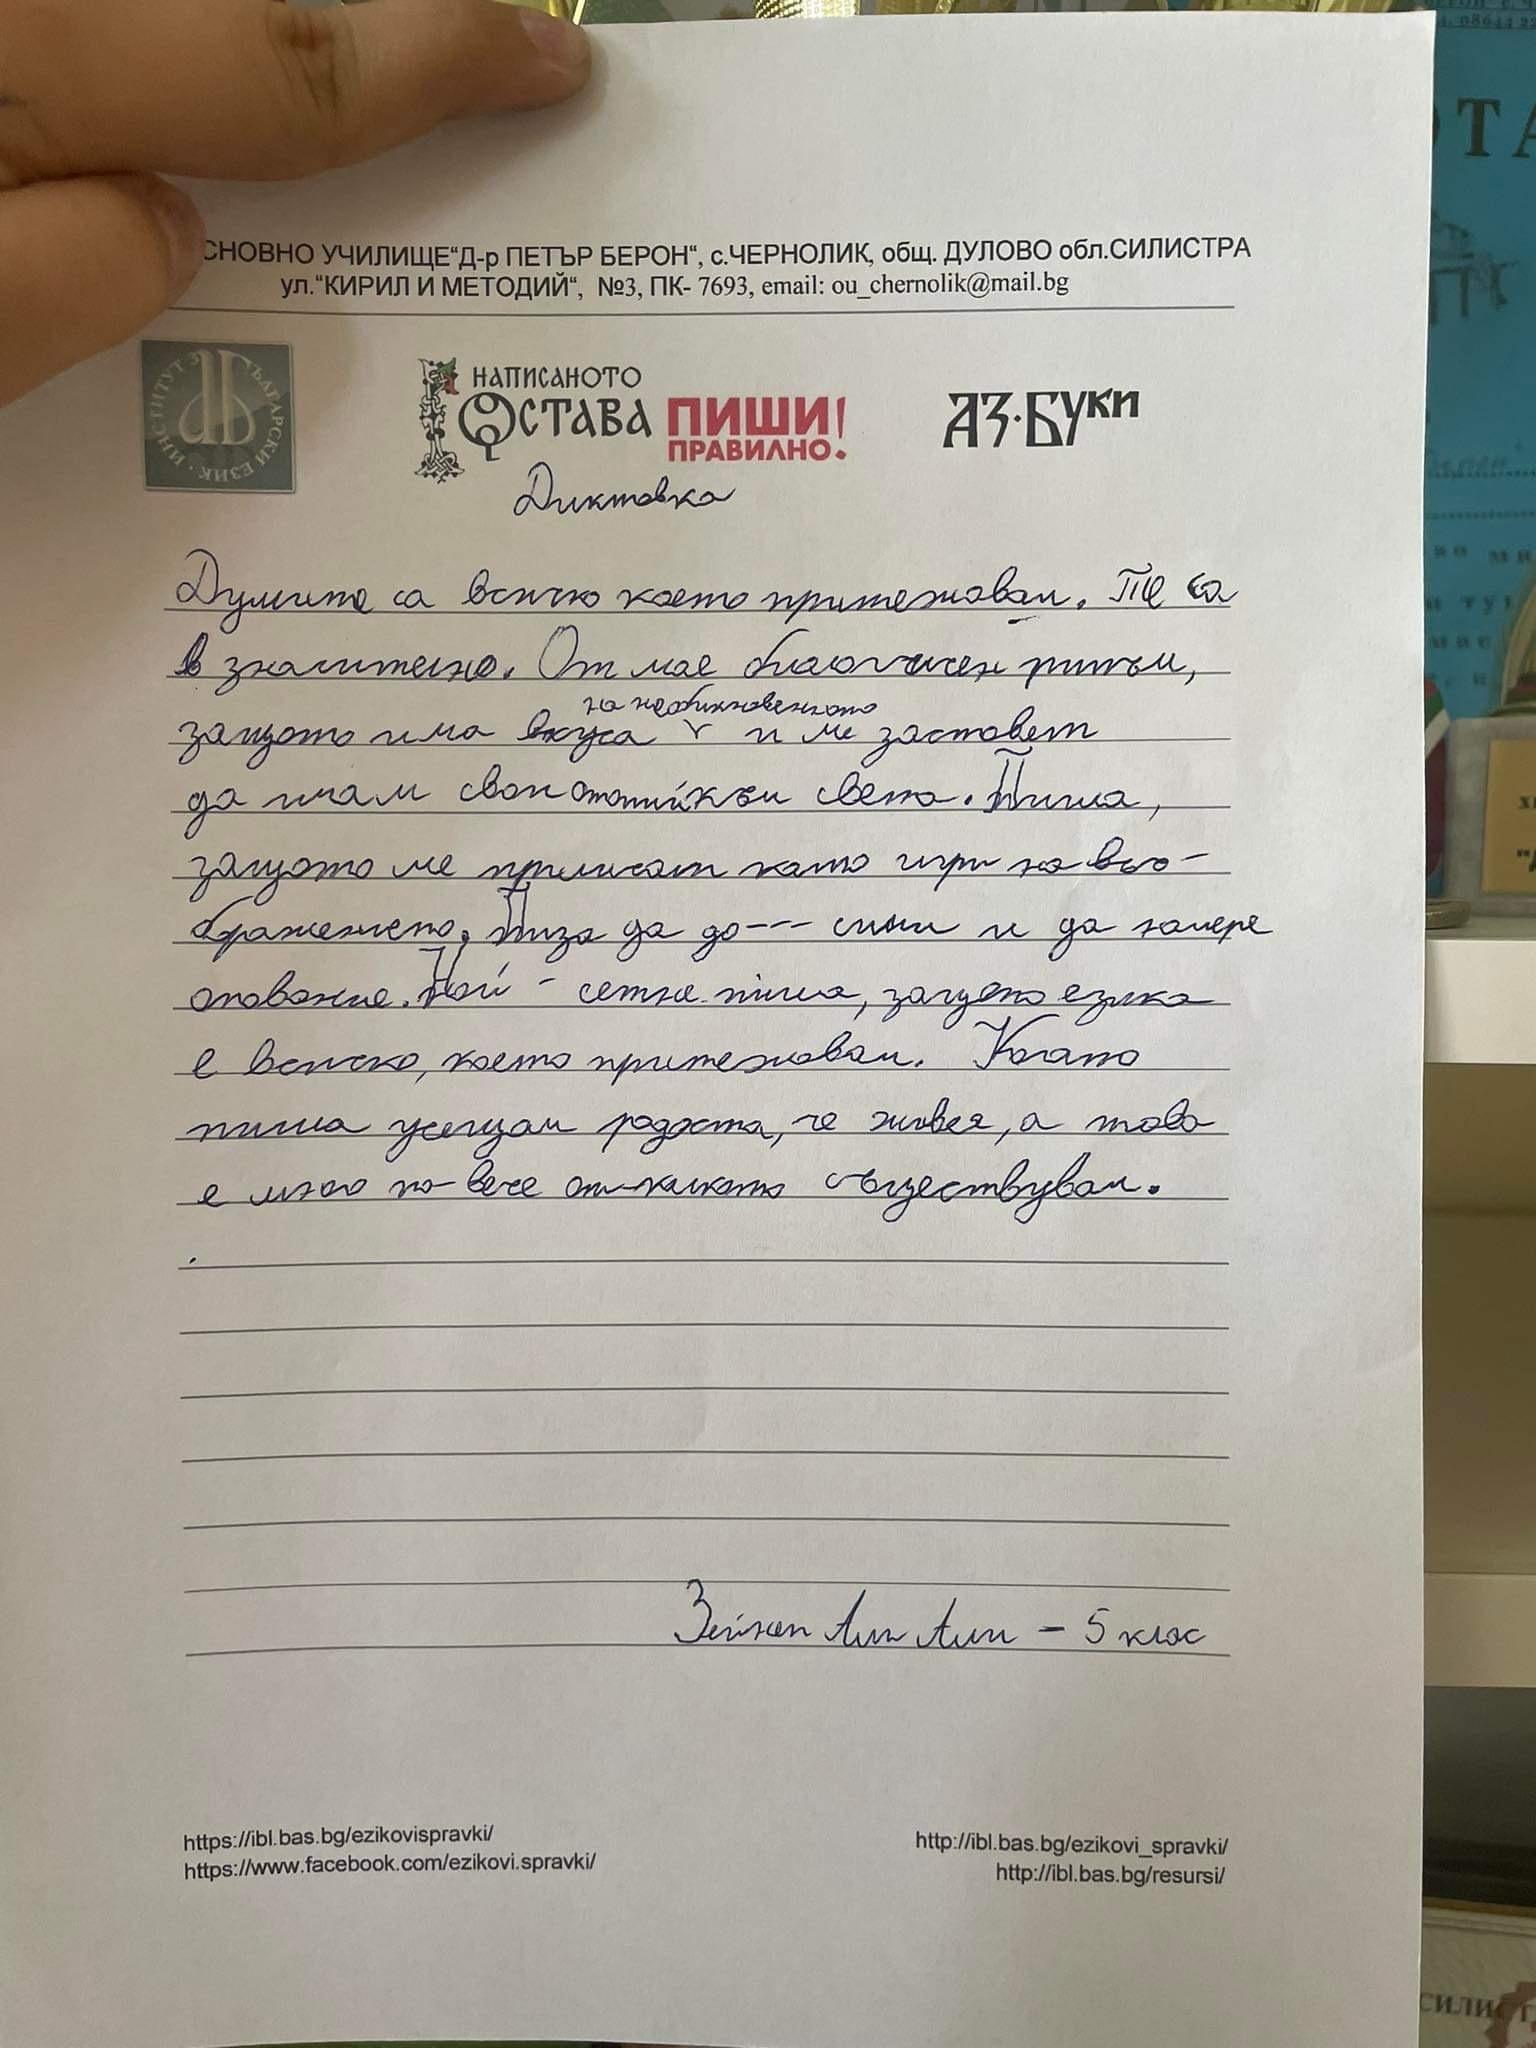 СНОВНО УЧИЛИЩЕ“Д-р ПЕТЪР БЕРОН“, с.ЧЕРНОЛИК, общ. ДУЛОВО обл.СИЛИСТРА
ул.“КИРИЛ И МЕТОДИЙ“, №3, ПК- 7693, email: ou_chernolik@mail.bg
ИНСТИТУТ ЗА БЪЛГАРСКИ ЕЗИК
НАПИСАНОТО
ОСТАВА ПИШИ
ПРАВИЛНО!
АЗ·БУКИ
Диктовка
Думите са всичко което притежавам. Те са
в значително. От мое ритъм,
на необикновеното
защото има вкуса и ме заставят
да имам свой към света. Пиша,
защото ме приличат като игри на въо-
бражението. да до--- сили и да намере
опование. Най - сетне пиша, защото езика
е всичко, което притежавам. Когато
пиша усещам радоста, че живея, а това
е много по-вече от-колкото съществувам.
Али Али - 5 клас
https://ibl.bas.bg/ezikovispravki/
https://www.facebook.com/ezikovi.spravki/
http://ibl.bas.bg/ezikovi_spravki/
http://ibl.bas.bg/resursi/